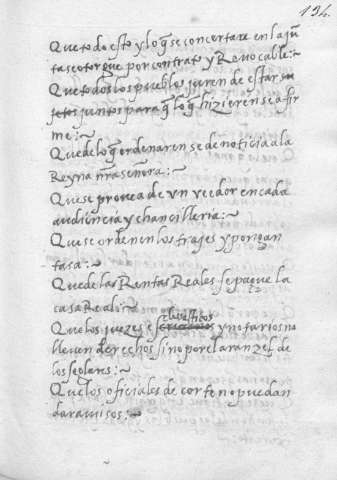 194.
Que todo esto y lo q̃ se concertare en la jũ
ta se otorgue por contrato yRevocable:~
Que todos los pueblos juren de estar
juntos para q̃ lo q̃ hizieren sea fir
me:~
Que de lo q̃ ordenaren se de noticia a la
Reyna nr̃a señora:~
Que se provea de vn veedor en cada
audiençia y chancilleria:~
Que se ordenen los trajes y pongan
tasa:~
Que de las Rentas Reales se pague la
casa Real:~
eclesiasticos
Que los juezes y notarios no
lleven derechos sino por el aranzel de
los seglares:~
Que los oficiales de corte no puedan
dar avisos:~